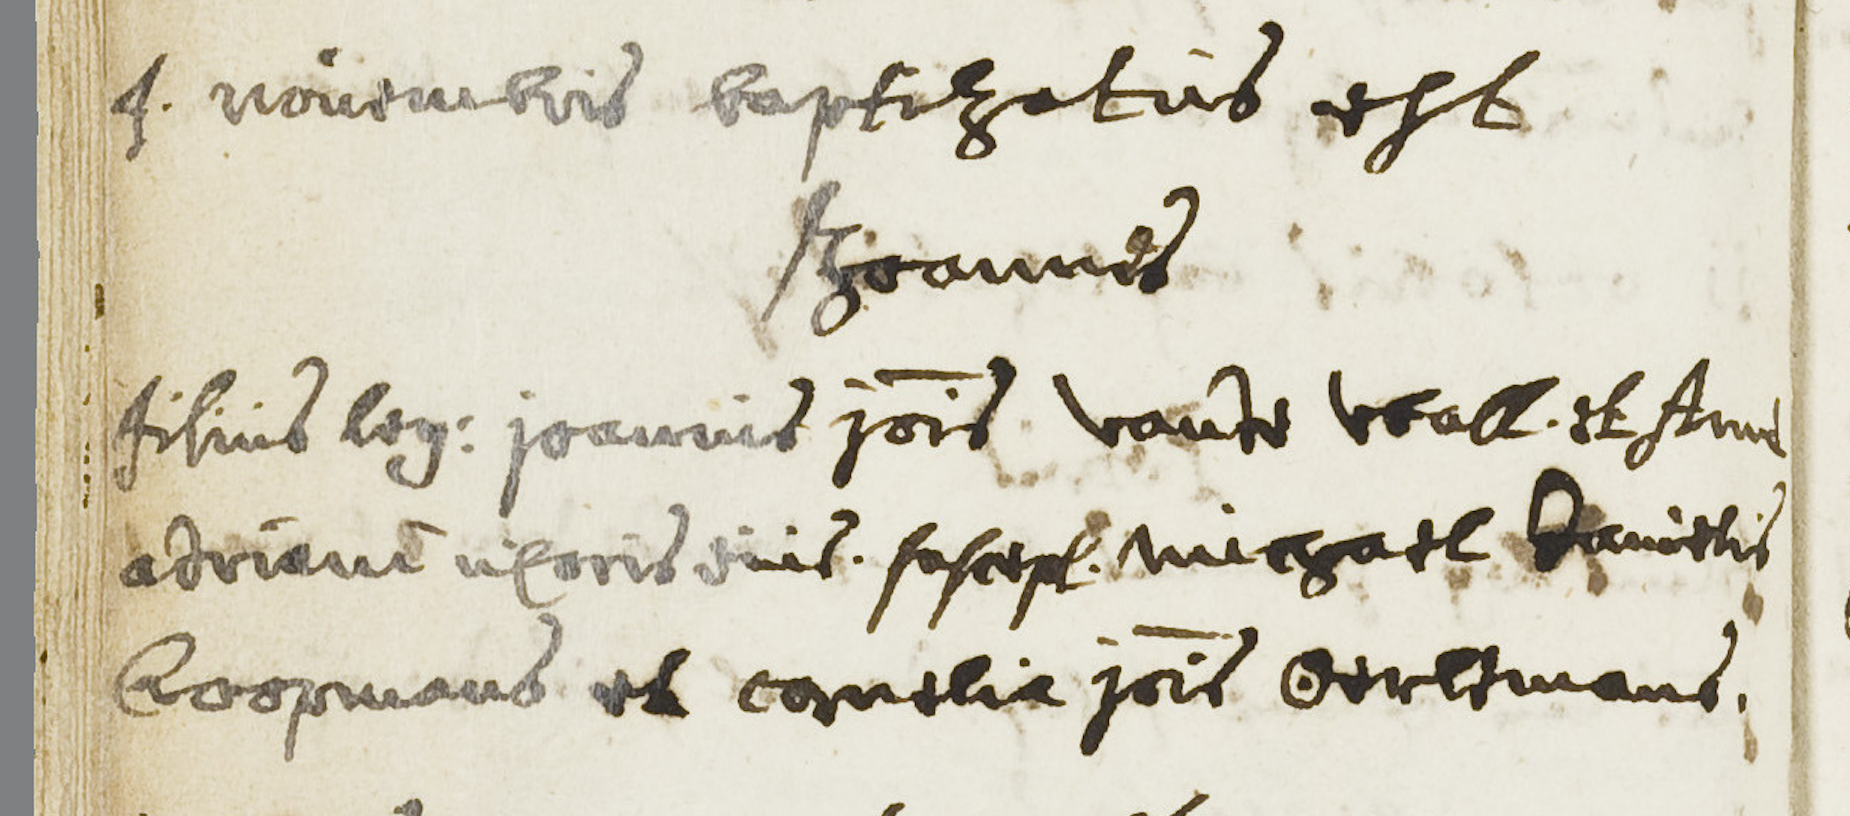 4. novembris baptizatus est
Joannes
filius leg: joannis jois vande Wall. et Anne
adriani uxoris eius. suscept. Michael Danielis
Coopmans et cornelia jois Oerlemans.